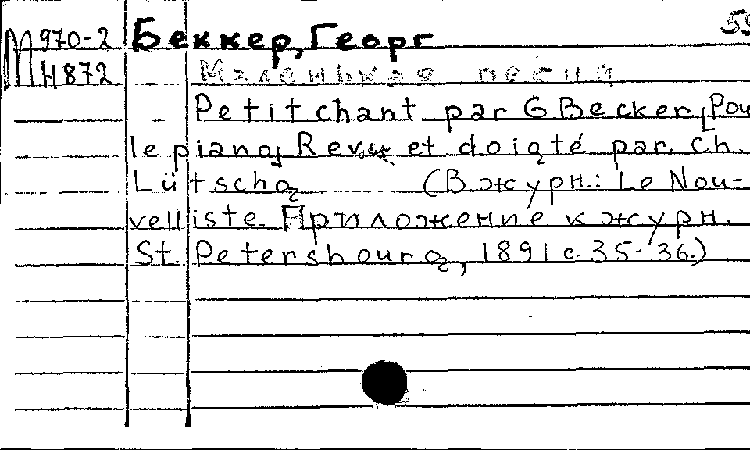 М 970-2 Беккер, Георг 55
Н872 Маленькая песня
Petit chant par G. Becker [Pou
le piano] Revu et doigté par Ch.
Lütschg (В журн.: Le Nou-
velliste. Приложение к журн.
St. Petersbourg, 1891 с. 35-36.)